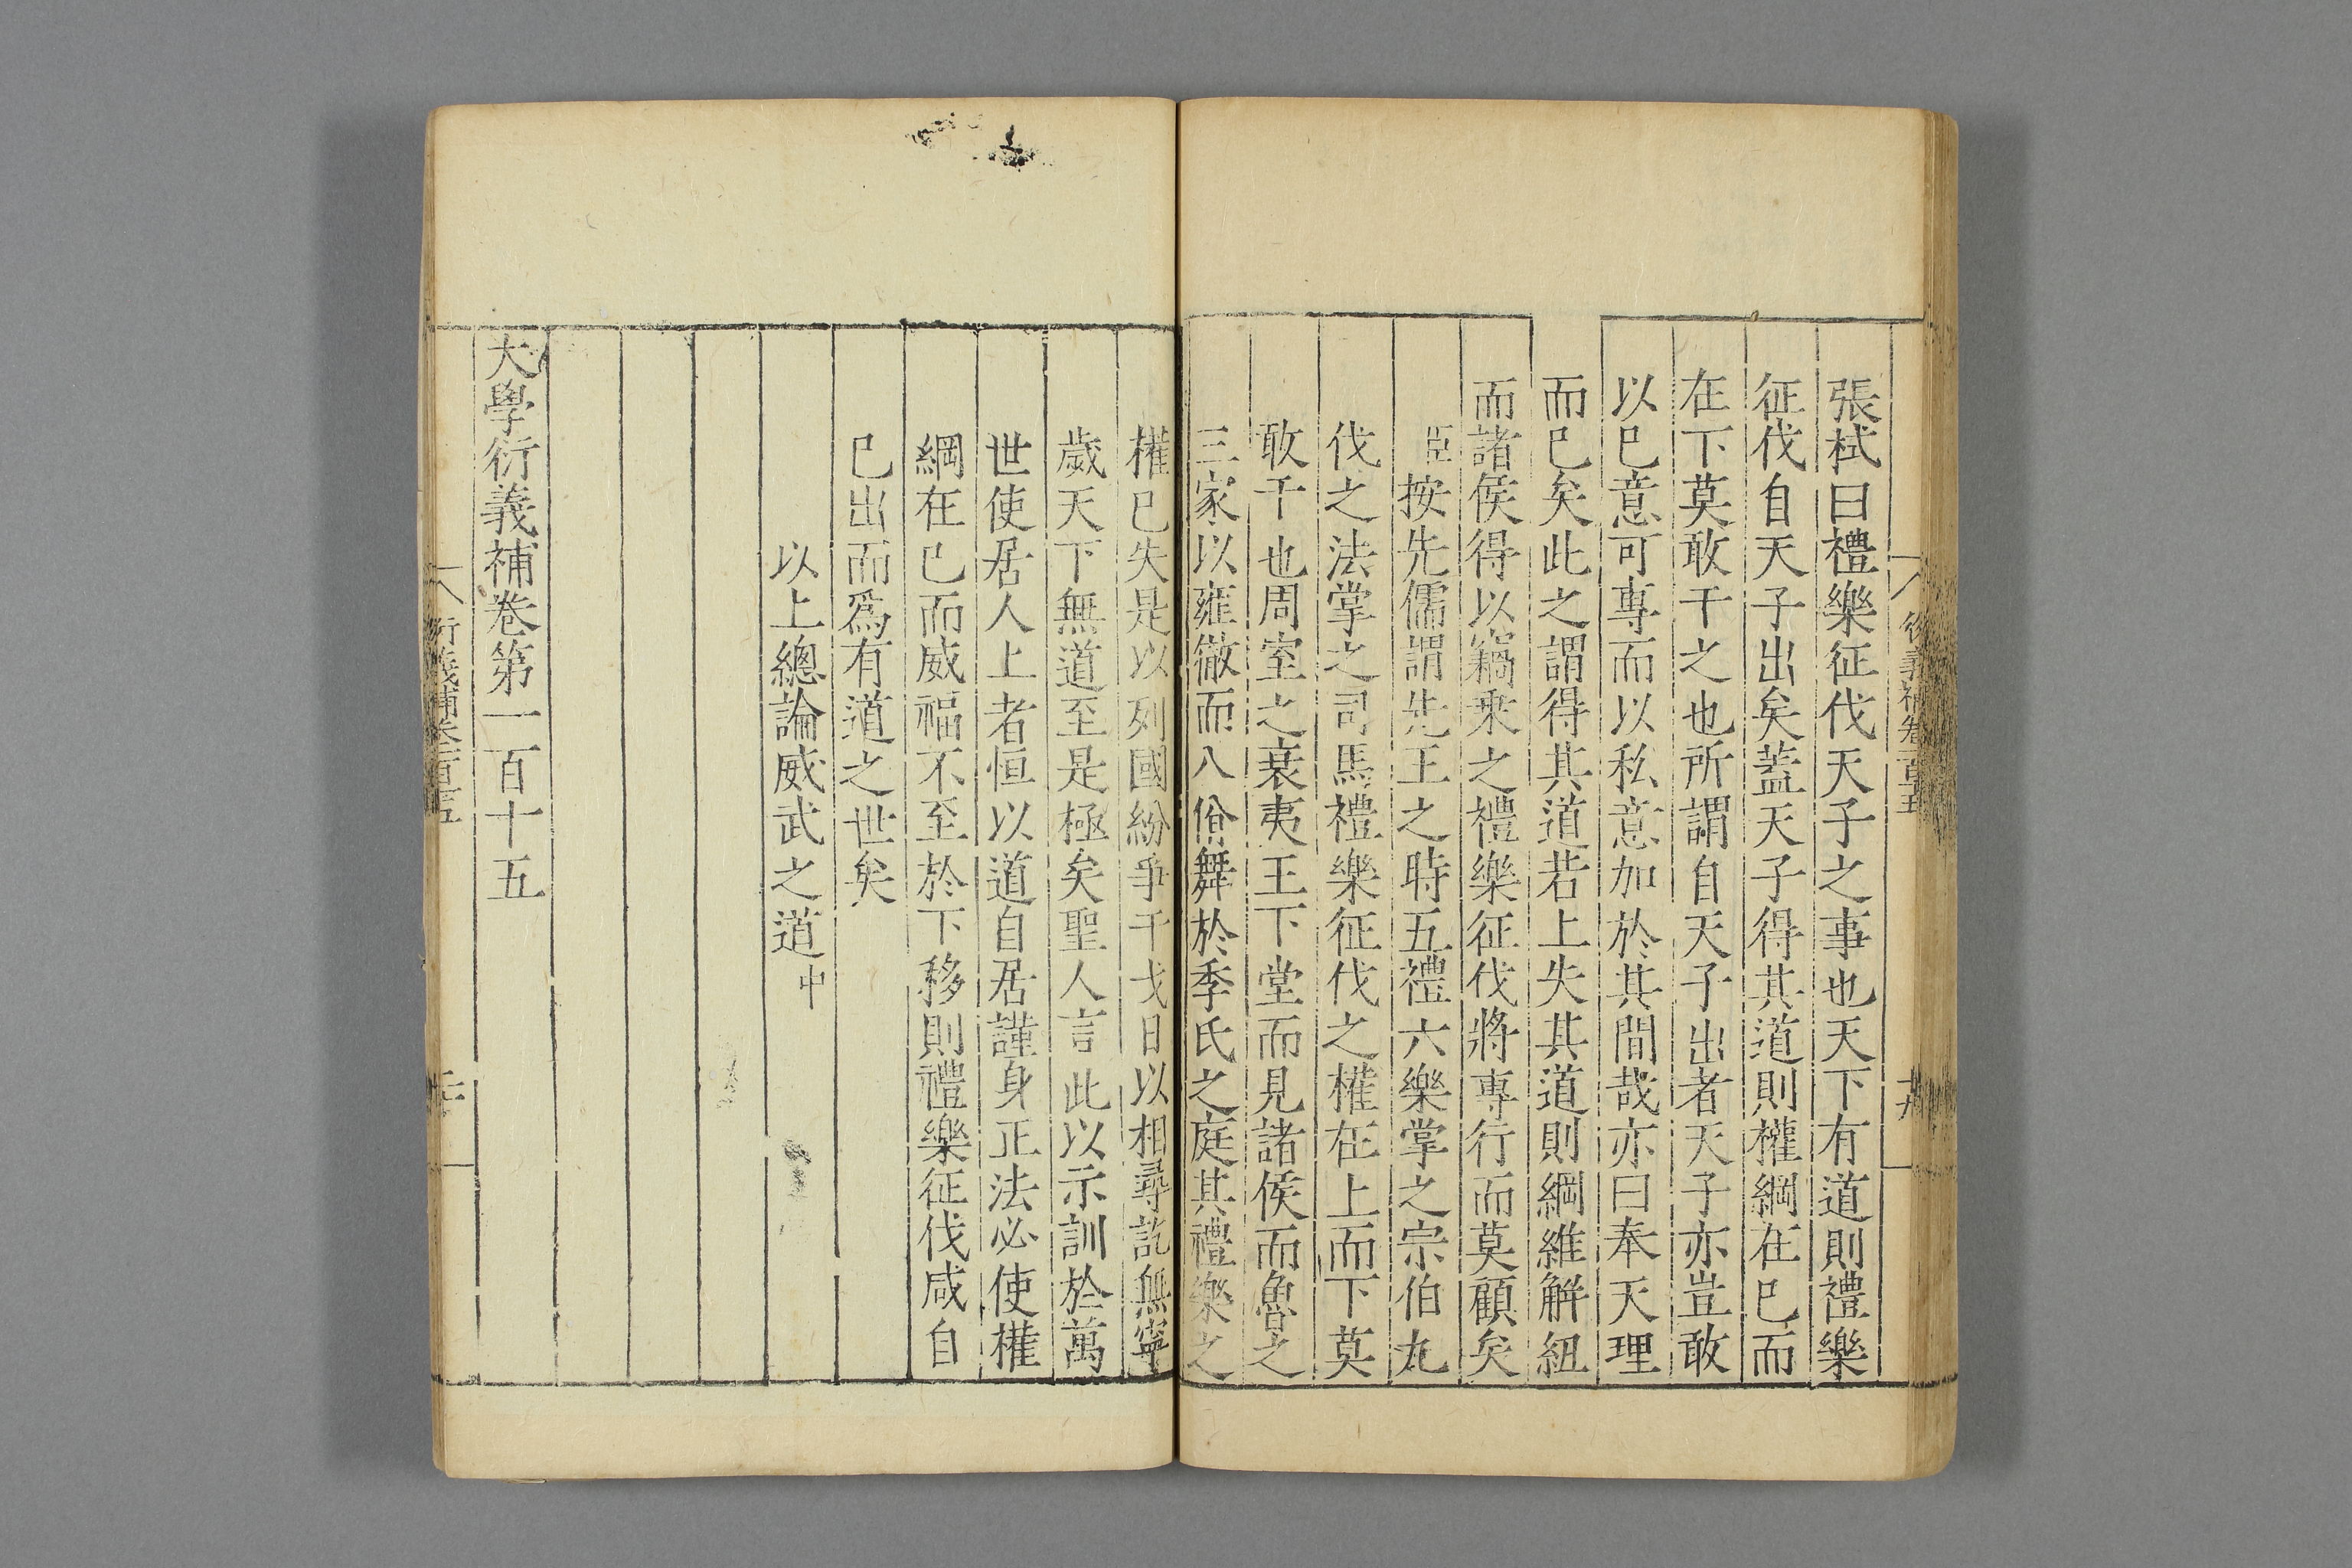 張栻曰禮樂征伐天子之事也天下有道則禮樂
征伐自天子出矣蓋天子得其道則權綱在已而
在下莫敢干之也所謂自天子出者天子亦豈敢
以已意可專而以私意加於其間哉亦曰奉天理
而已矣此之謂得其道若上失其道則綱維解紐
而諸侯得以竊乘之禮樂征伐將專行而莫顧矣
臣按先儒謂先王之時五禮六樂掌之宗伯九
伐之法掌之司馬禮樂征伐之權在上而下莫
敢干也周室之衰夷王下堂而見諸侯而魯之
三家以雍徹而八佾舞於季氏之庭其禮樂之
權已失是以列國紛爭干戈日以相尋訖無寧
歲天下無道至是極矣聖人言此以示訓於萬
世使居人上者恒以道自居謹身正法必使權
綱在已而威福不至於下移則禮樂征伐咸自
已出而爲有道之世矣
以上總論威武之道中
大學衍義補卷第一百十五